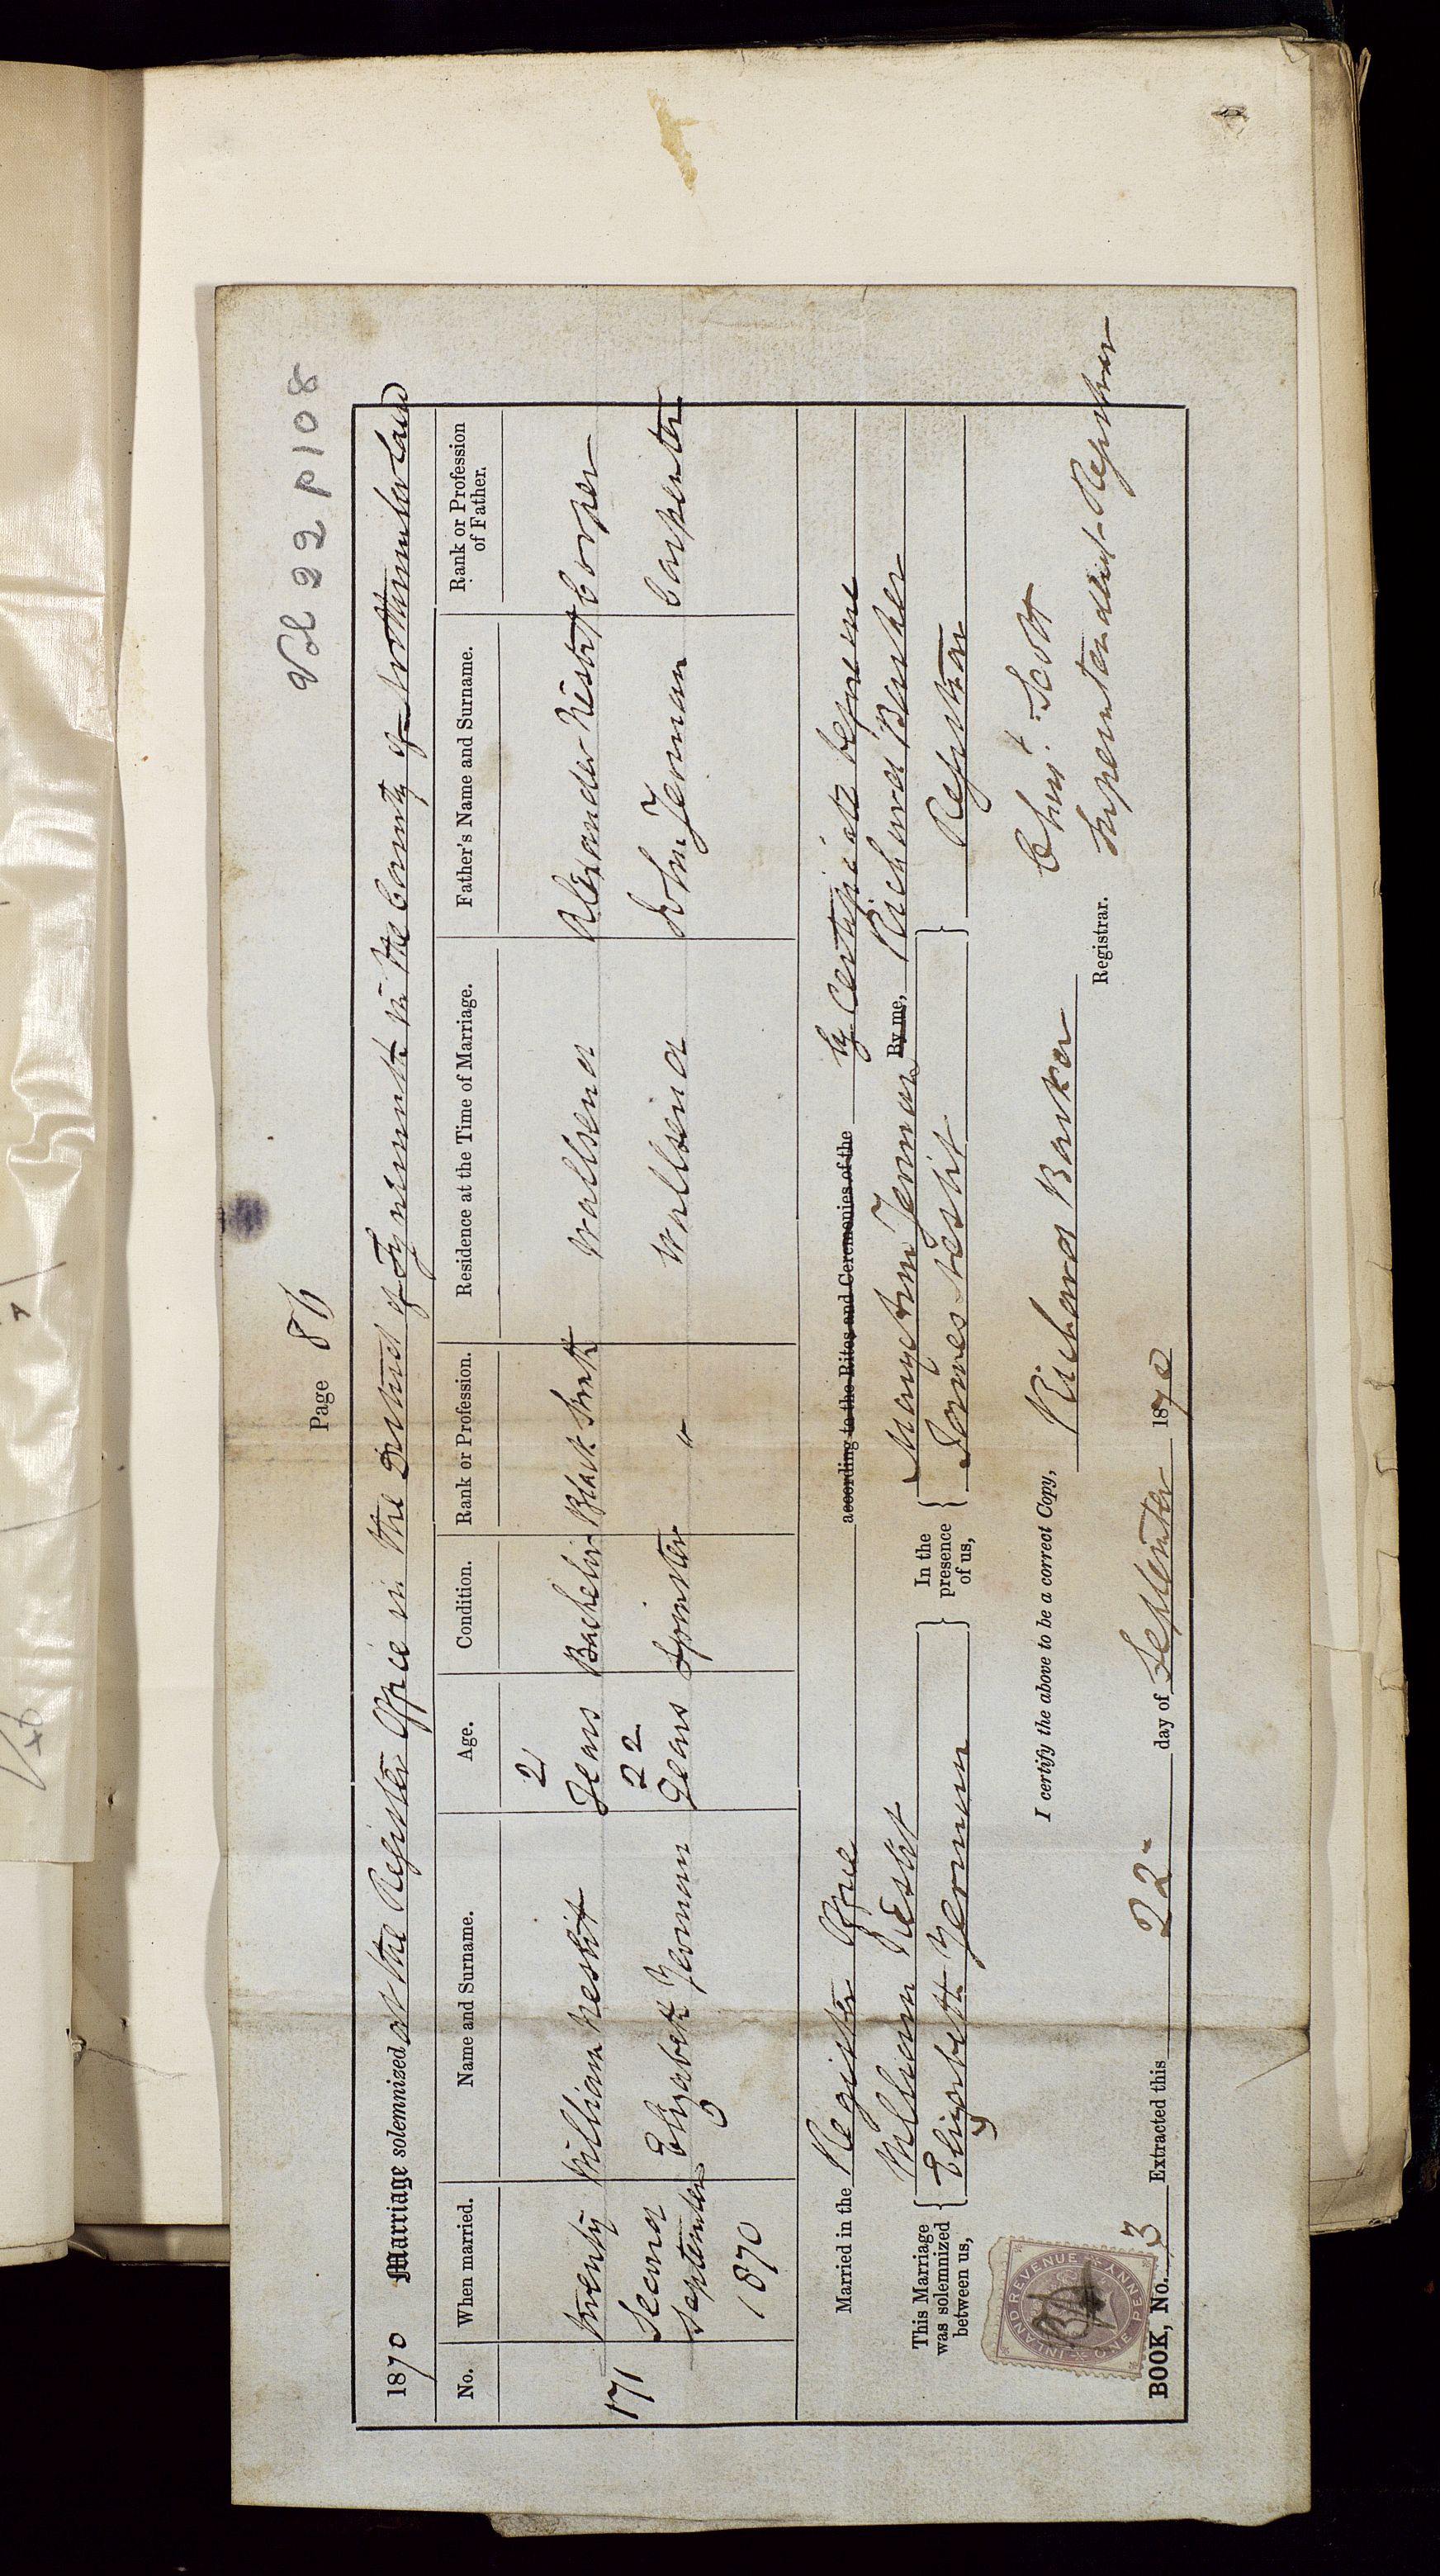 Vol 22 p 108
Page 86
1870 Marriage solemnized at the Register Office in the District of Tynemouth in the County of Northumberland
No. When married. Name and Surname. Age. Condition. Rank or Profession. Residence at the Time of Marriage. Father's Name and Surname. Rank or Profession of Father.
171 Twenty Second September 1870 William Nesbit 21 Years Bachelor Black Smith Wallsend Alexander Nesbit Cooper
Elizabeth Yeoman 22 Years Spinster " Wallsend John Yeoman Carpenter
Married in the Register Office according to the Rites and Ceremonies of the by Certificate before me
This Marriage was solemnized between us, William Nesbit In the presence of us, Mary Ann Yeoman By me, Richard Barker
Elizabeth Yeoman James Nesbit Registrar
I certify the above to be a correct Copy, Richard Barker Chris.r Scott
Registrar. Superintendent Registrar
INLAND REVENUE ONE PENNY
BOOK, No. 3 Extracted this 22 day of September 1870